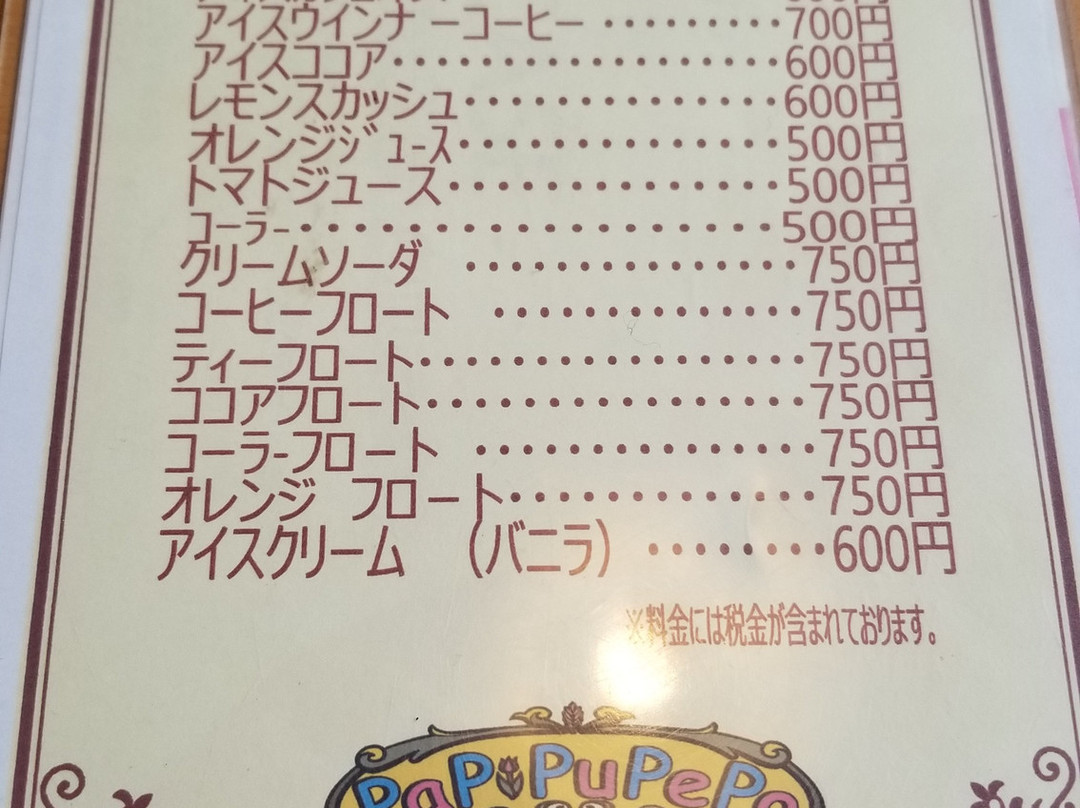 アイスウインナーコーヒー ・・・・・・・・700円
アイスココア・・・・・・・・・・・・・・・・・600円
レモンスカッシュ・・・・・・・・・・・・・・600円
オレンジジュース・・・・・・・・・・・・・・500円
トマトジュース・・・・・・・・・・・・・・・500円
コーラー・・・・・・・・・・・・・・・・・・500円
クリームソーダ ・・・・・・・・・・・・・・750円
コーヒーフロート ・・・・・・・・・・・・・750円
ティーフロート・・・・・・・・・・・・・・・・750円
ココアフロート・・・・・・・・・・・・・・・750円
コーラーフロート ・・・・・・・・・・・・・750円
オレンジ フロート・・・・・・・・・・・・・750円
アイスクリーム (バニラ) ・・・・・・・・600円
※料金には税金が含まれております。
PaPiPuPePo